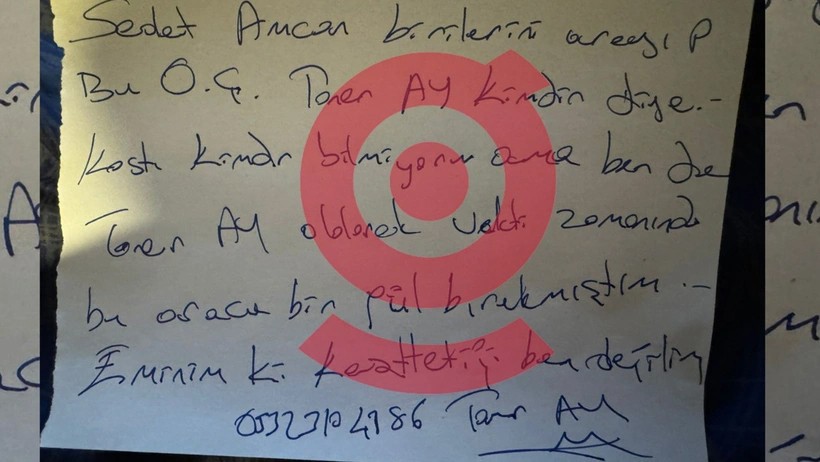 Sedat Amcan birilerini arayıp
Bu O.Ç. Taner AY kimdir diye.-
kimdir bilmiyorum ama ben de
Taner AY olarak vakti zamanında
bu araca bir gül bırakmıştım .-
Eminim ki kastettiği ben değilim
Taner AY